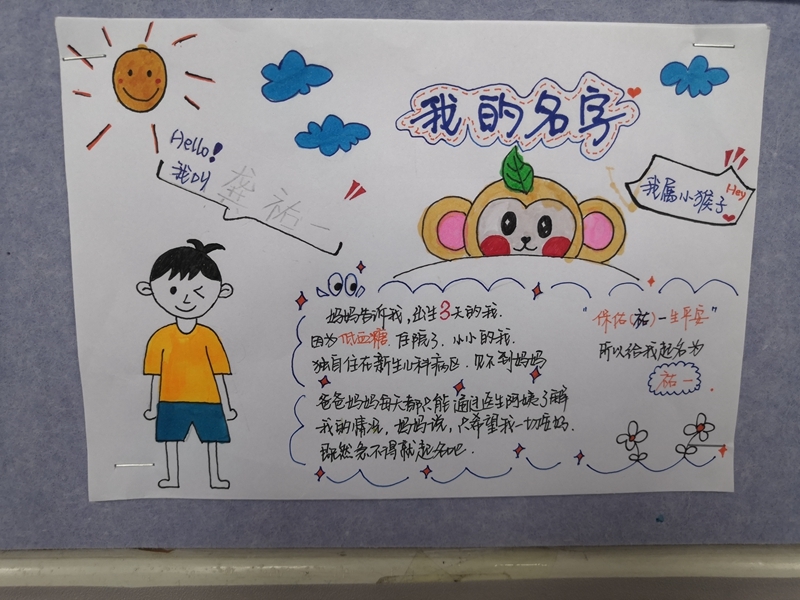 我的名字
Hello!
我叫
龚祐一
我属小猴子
Hey
妈妈告诉我,出生3天的我.
因为低血糖.住院了.小小的我.
独自住在新生儿科病区.见不到妈妈
爸爸妈妈每天都只能通过医生阿姨了解
我的情况,妈妈说,只希望我一切安好.
既然舍不得就起名吧.
"保佑(祐)一生平安"
所以给我起名为
祐一